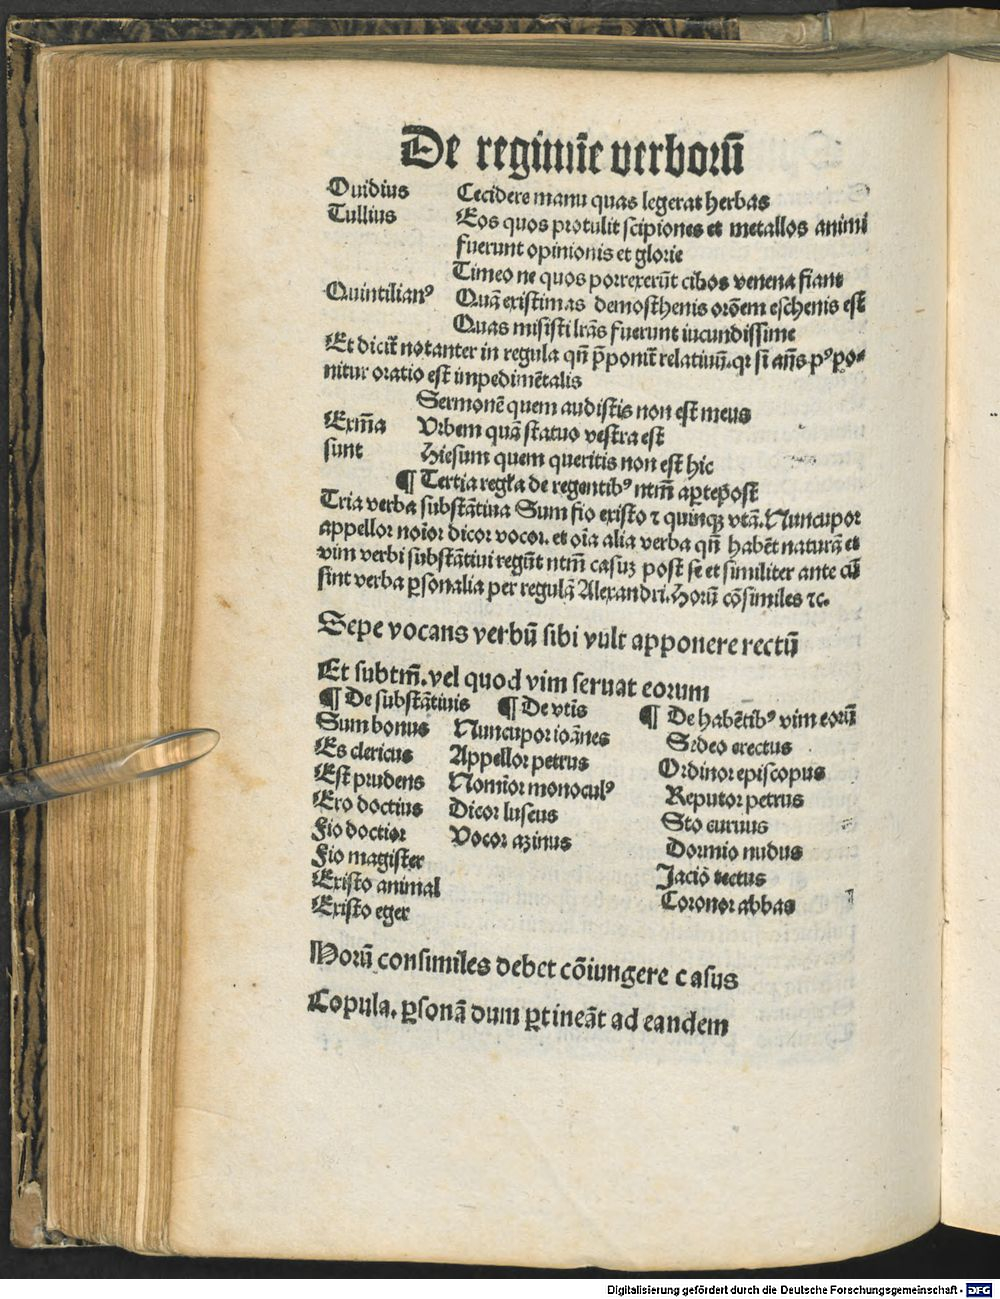 De regimīe verborū
Ouidius Cecidere manu quas legerat herbas
Tullius Eos quos protulit scipiones et metallos animi
fuerunt opinionis et glorie
Timeo ne quos porrexerūt cibos venena fiant
Quintilianꝰ Quā existimas demosthenis orōem eschenis est
Quas misisti lr̄as fuerunt iucundissime
Et dicit̄ notanter in regula qn̄ p̄ponit̄ relatiuū. qr si an̄s pꝰpo-
nitur oratio est impedimētalis
Sermonē quem audistis non est meus
Exm̄a Vrbem quā statuo vestra est
sunt Hiesum quem queritis non est hic
¶ Tertia regl̄a de regentibꝰ ntm̄ a ꝑte post
Tria verba substātiua Sum fio existo ⁊ quinqꝫ vtā. Nuncupor
appellor noīor dicor vocor. et oīa alia verba qn̄ habēt naturā et
vim verbi substātiui regūt ntm̄ casuꝫ post se et similiter ante cū
sint verba ꝑsonalia per regulā Alexandri. Horū cōsimiles ⁊c.
Sepe vocans verbū sibi vult apponere rectū
Et subtm̄. vel quod vim seruat eorum
¶ De substātiuis ¶ De vtis ¶ De habētibꝰ vim eorū
Sum bonus Nuncupor ioānes Sedeo erectus
Es clericus Appellor petrus Ordinor episcopus
Est prudens Nomīor monoculꝰ Reputor petrus
Ero doctius Dicor luscus Sto curuus
Fio doctior Vocor azinus Dormio nudus
Fio magister Jaceo tectus
Existo animal Coronor abbas
Existo eger
Horū consimiles debet cōiungere casus
Copula. ꝑsonā dum ꝑtineāt ad eandem
Digitalisierung gefördert durch die Deutsche Forschungsgemeinschaft - DFG